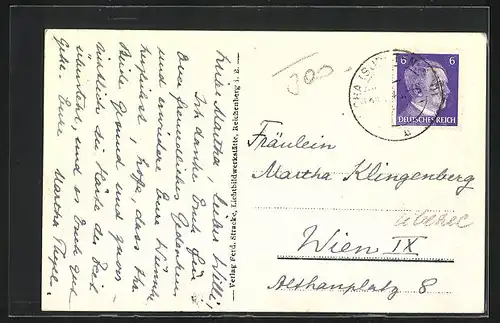 Liebe Martha, lieber Willi!
Ich danke Euch für
Euer freundliches Gedenken
und erwidere Eure Wünsche
herzlichst, hoffe, dass Ihr
Beide gesund und
die Härte der Zeit
übersteht, und es Euch gut
gehe. Eure
Martha
Verlag Ferd. Stracke, Lichtbildwerkstätte, Reichenberg i. B.
6 6
DEUTSCHES REICH
b
Fräulein
Martha Klingenberg
Wien IX
Althanplatz 8